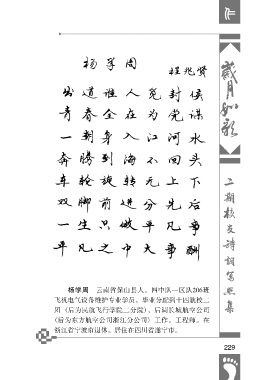 作
岁月如歌
二期校友诗词写照集
杨学周
程兆贤
出道谁人觅封侯
青春全在为党谋
一朝身入江河水
奔腾到海不回头
车轮旋转无上下
双脚前进分先后
一生只做平凡事
平凡之中大事酬
杨学周 云南省保山县人。四中队一区队206班
飞机电气设备维护专业学员。毕业分配到十四航校三
团(后为民航飞行学院三分院)。后调长城航空公司
(后为东方航空公司浙江分公司)工作。工程师。在
浙江省宁波市退休。居住在四川省遂宁市。
229